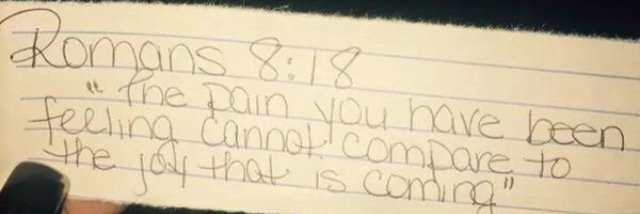 Romans 8:18
"The pain you have been
feeling cannot compare to
the joy that is coming"